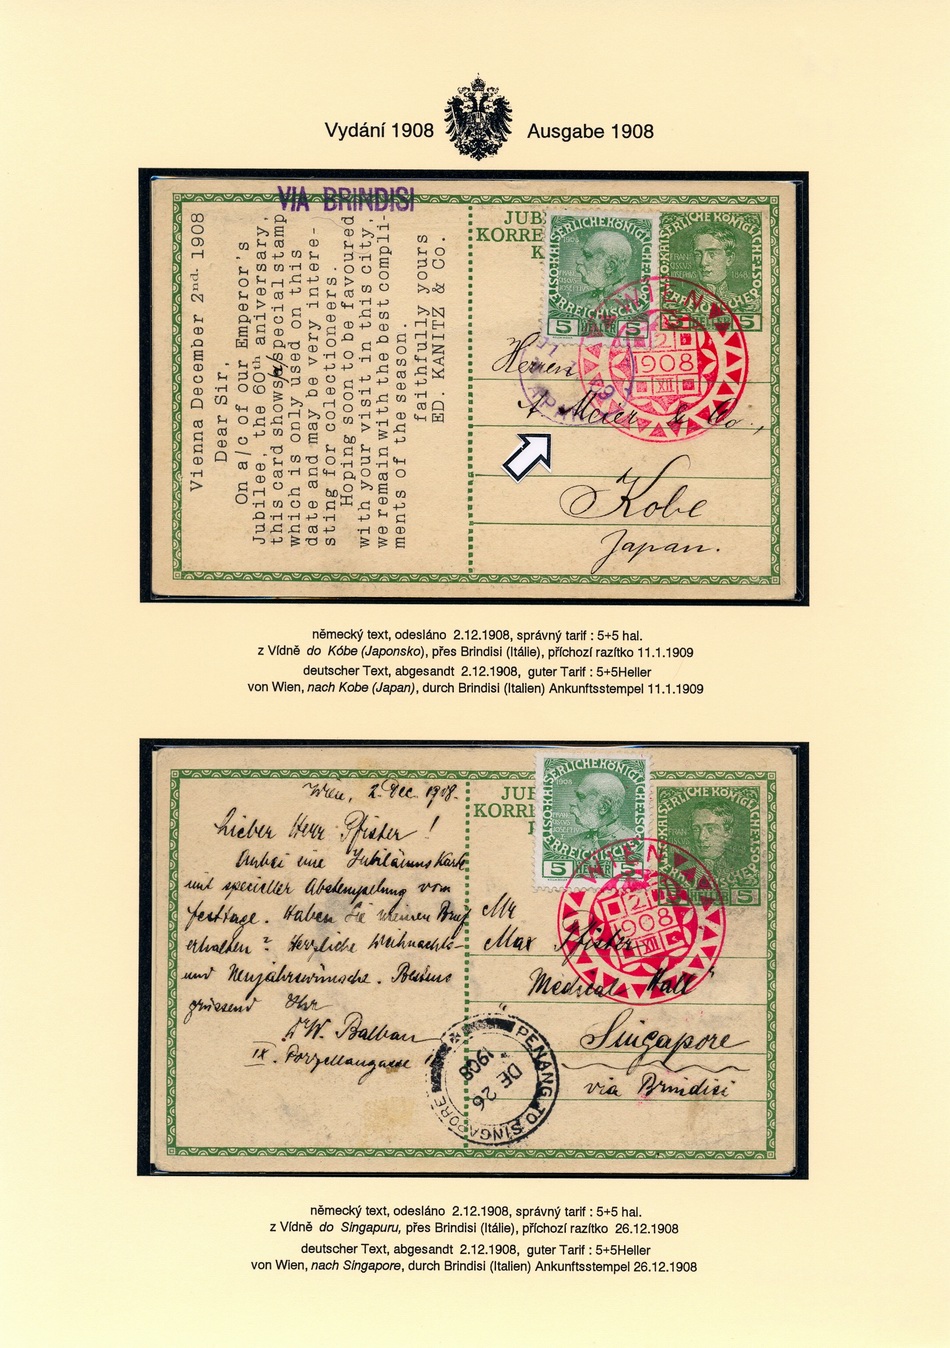 Vydání 1908 Ausgabe 1908
VIA BRINDISI
Vienna December 2nd. 1908
Dear Sir,
On a/c of our Emperor's
Jubilee, the 60th aniversary,
this card shows a special stamp
which is only used on this
date and may be very intere-
sting for colectioneers.
Hoping soon to be favoured
with your visit in this city,
we remain with the best compli-
ments of the season.
faithfully yours
ED. KANITZ & Co.
JUB
KORRE
K
KAISERLICHE KÖNIGLICHE
1908
5 HELLER 5
FRANZ
1848
5 HELLER 5
WIEN
2
1908
XII
Herren
A. Meier & Co.,
Kobe
Japan.
německý text, odesláno 2.12.1908, správný tarif : 5+5 hal.
z Vídně do Kóbe (Japonsko), přes Brindisi (Itálie), příchozí razítko 11.1.1909
deutscher Text, abgesandt 2.12.1908, guter Tarif : 5+5Heller
von Wien, nach Kobe (Japan), durch Brindisi (Italien) Ankunftsstempel 11.1.1909
Wien, 2. Dec. 1908.
Lieber Herr Pfister !
Anbei eine Jubiläums Karte
mit specieller Abstempelung vom
Festtage. Haben Sie meinen Brief
erhalten ? Herzliche Weihnachts-
und Neujahrswünsche. Bestens
grüssend Ihr
W. Balban
IX. Porzellangasse
JUB
KORRE
KAISERLICHE KÖNIGLICHE
1908
5 HELLER 5
FRANZ
5
WIEN
2
1908
XII
Mr
Max Pfister
"Medical Hall"
Singapore
via Brindisi
PENANG TO SINGAPORE
DE 26
1908
německý text, odesláno 2.12.1908, správný tarif : 5+5 hal.
z Vídně do Singapuru, přes Brindisi (Itálie), příchozí razítko 26.12.1908
deutscher Text, abgesandt 2.12.1908, guter Tarif : 5+5Heller
von Wien, nach Singapore, durch Brindisi (Italien) Ankunftsstempel 26.12.1908